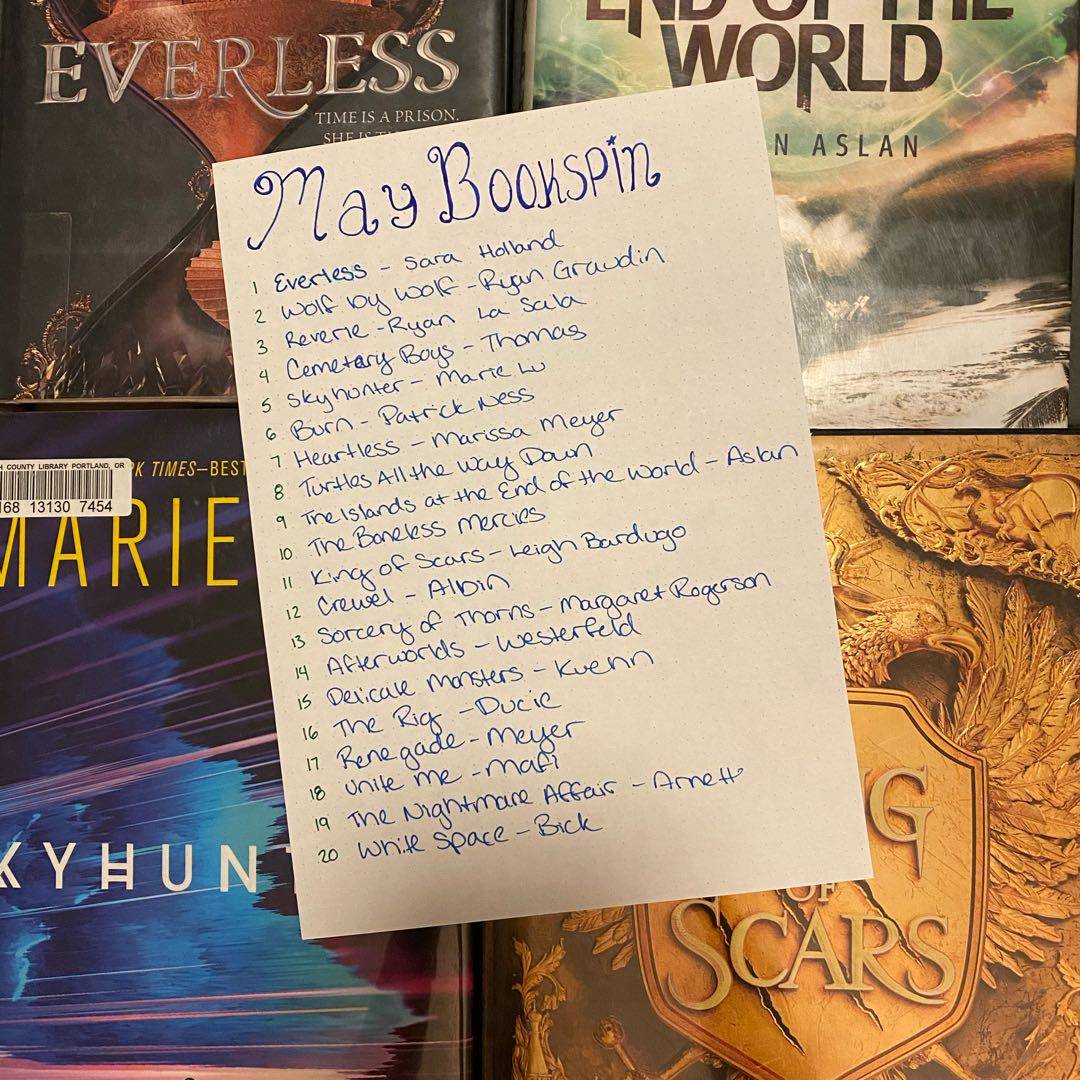 EVERLESS
TIME IS A PRISON.
END OF THE
WORLD
N ASLAN
May Bookspin
1 Everless - Sara Holland
2 Wolf by Wolf - Ryan Graudin
3 Reverie - Ryan La Sala
4 Cemetary Boys - Thomas
5 Skyhunter - Marie Lu
6 Burn - Patrick Ness
7 Heartless - Marissa Meyer
8 Turtles All the Way Down
9 The Islands at the End of the World - Aslan
10 The Boneless Mercies
11 King of Scars - Leigh Bardugo
12 Crewel - Albin
13 Sorcery of Thorns - Margaret Rogerson
14 Afterworlds - Westerfeld
15 Delicate Monsters - Kuehn
16 The Rig - Ducie
17 Renegade - Meyer
18 Unite Me - Mafi
19 The Nightmare Affair - Arnett
20 White Space - Bick
H COUNTY LIBRARY PORTLAND, OR
168 13130 7454
RK TIMES—BEST
MARIE
KYHUN
NG
OF
SCARS